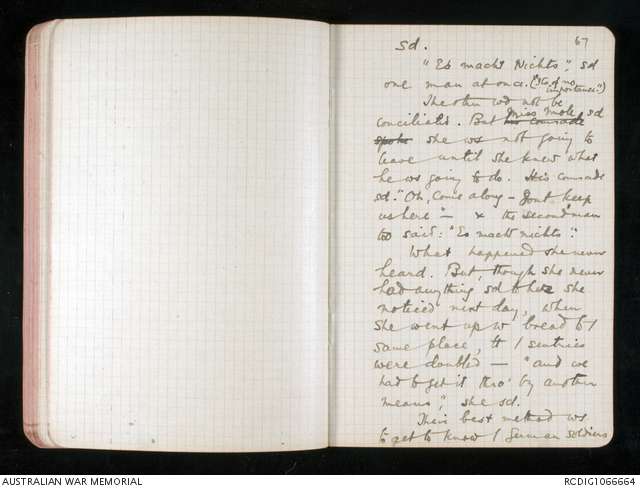 67
sd.
"Es macht Nichts", sd
one man at once. ("Its of no importance".)
The other wd not be
conciliated. But his comrade Miss Mole sd
spoke she ws not going to
leave until she knew what
he ws going to do. His comrade
sd. "Oh, Come along - Dont keep
us here" - & the second man
too said: "Es macht nichts".
What happened she never
heard. But, though she never
had anything sd to her she
noticed next day, when
she went up w bread to /
same place, tt / sentries
were doubled - "and we
had to get it thro' by another
means", she sd.
Their best method ws
to get to know / German soldiers
AUSTRALIAN WAR MEMORIAL
RCDIG1066664